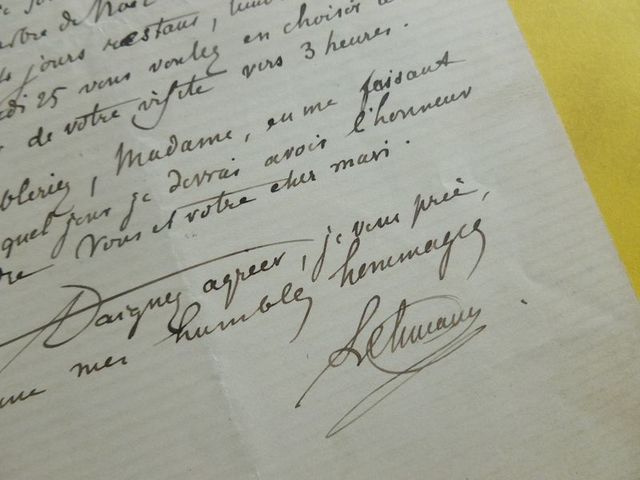 arbre de Noël
jours restans,
25 vous voulez en choisir
de votre visite vers 3 heures.
, Madame, en me faisant
quel jour je devrai avoir l'honneur
vous et votre cher mari.
Daignez agréer, je vous prie,
mes humbles hommages
Lehmann